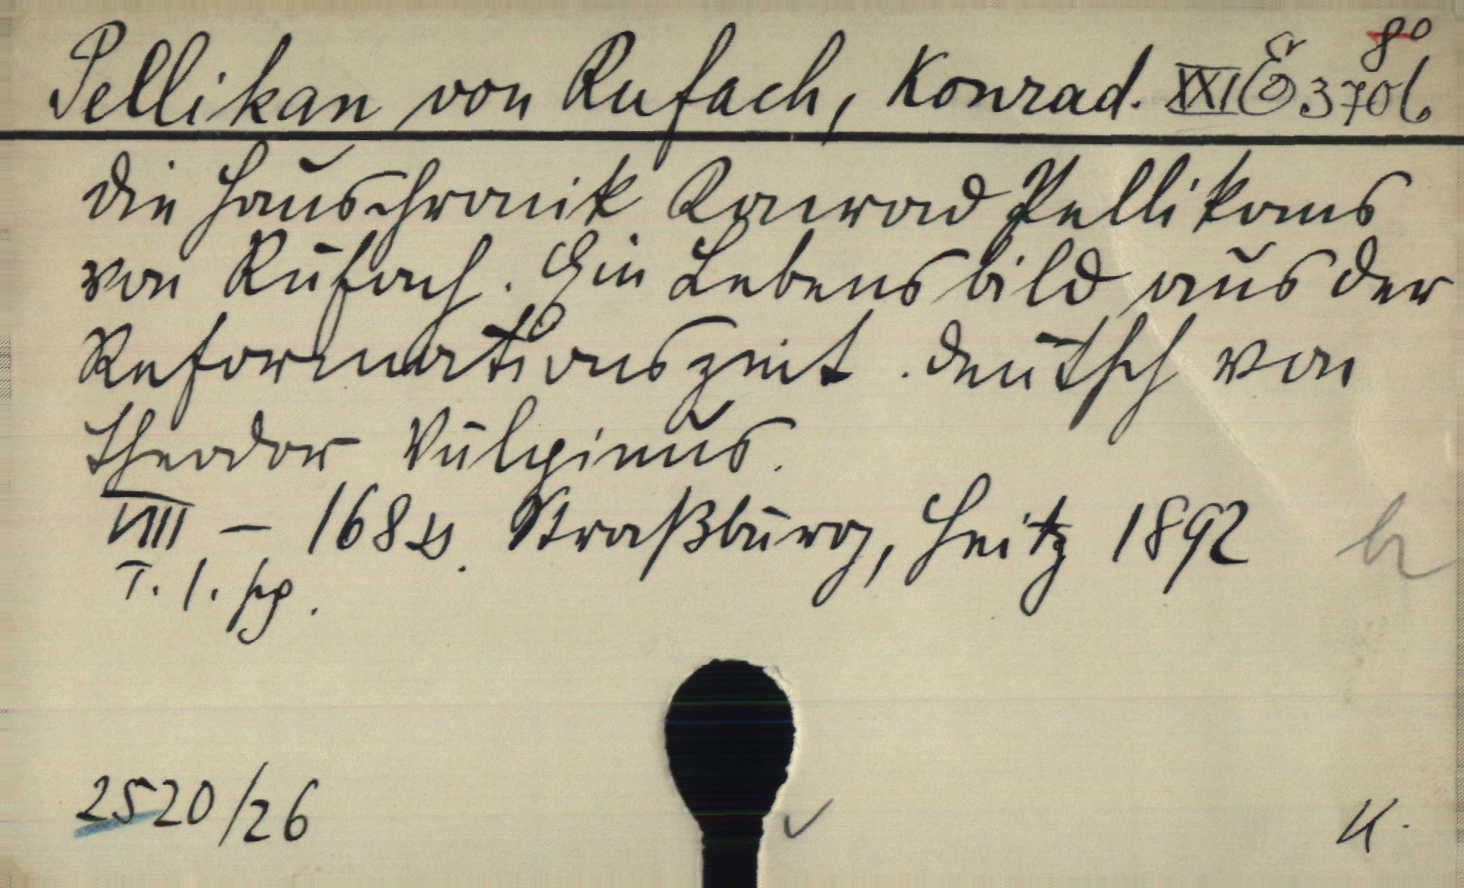 Pellikan von Rufach, Konrad. XXI E 370b 8°
Die Hauschronik Konrad Pellikans
von Rufach. Ein Lebensbild aus der
Reformationszeit. Deutsch von
Theodor Vulpinus.
VIII – 168 S. Straßburg, Heitz 1892
T. 1.
2520/26
K.